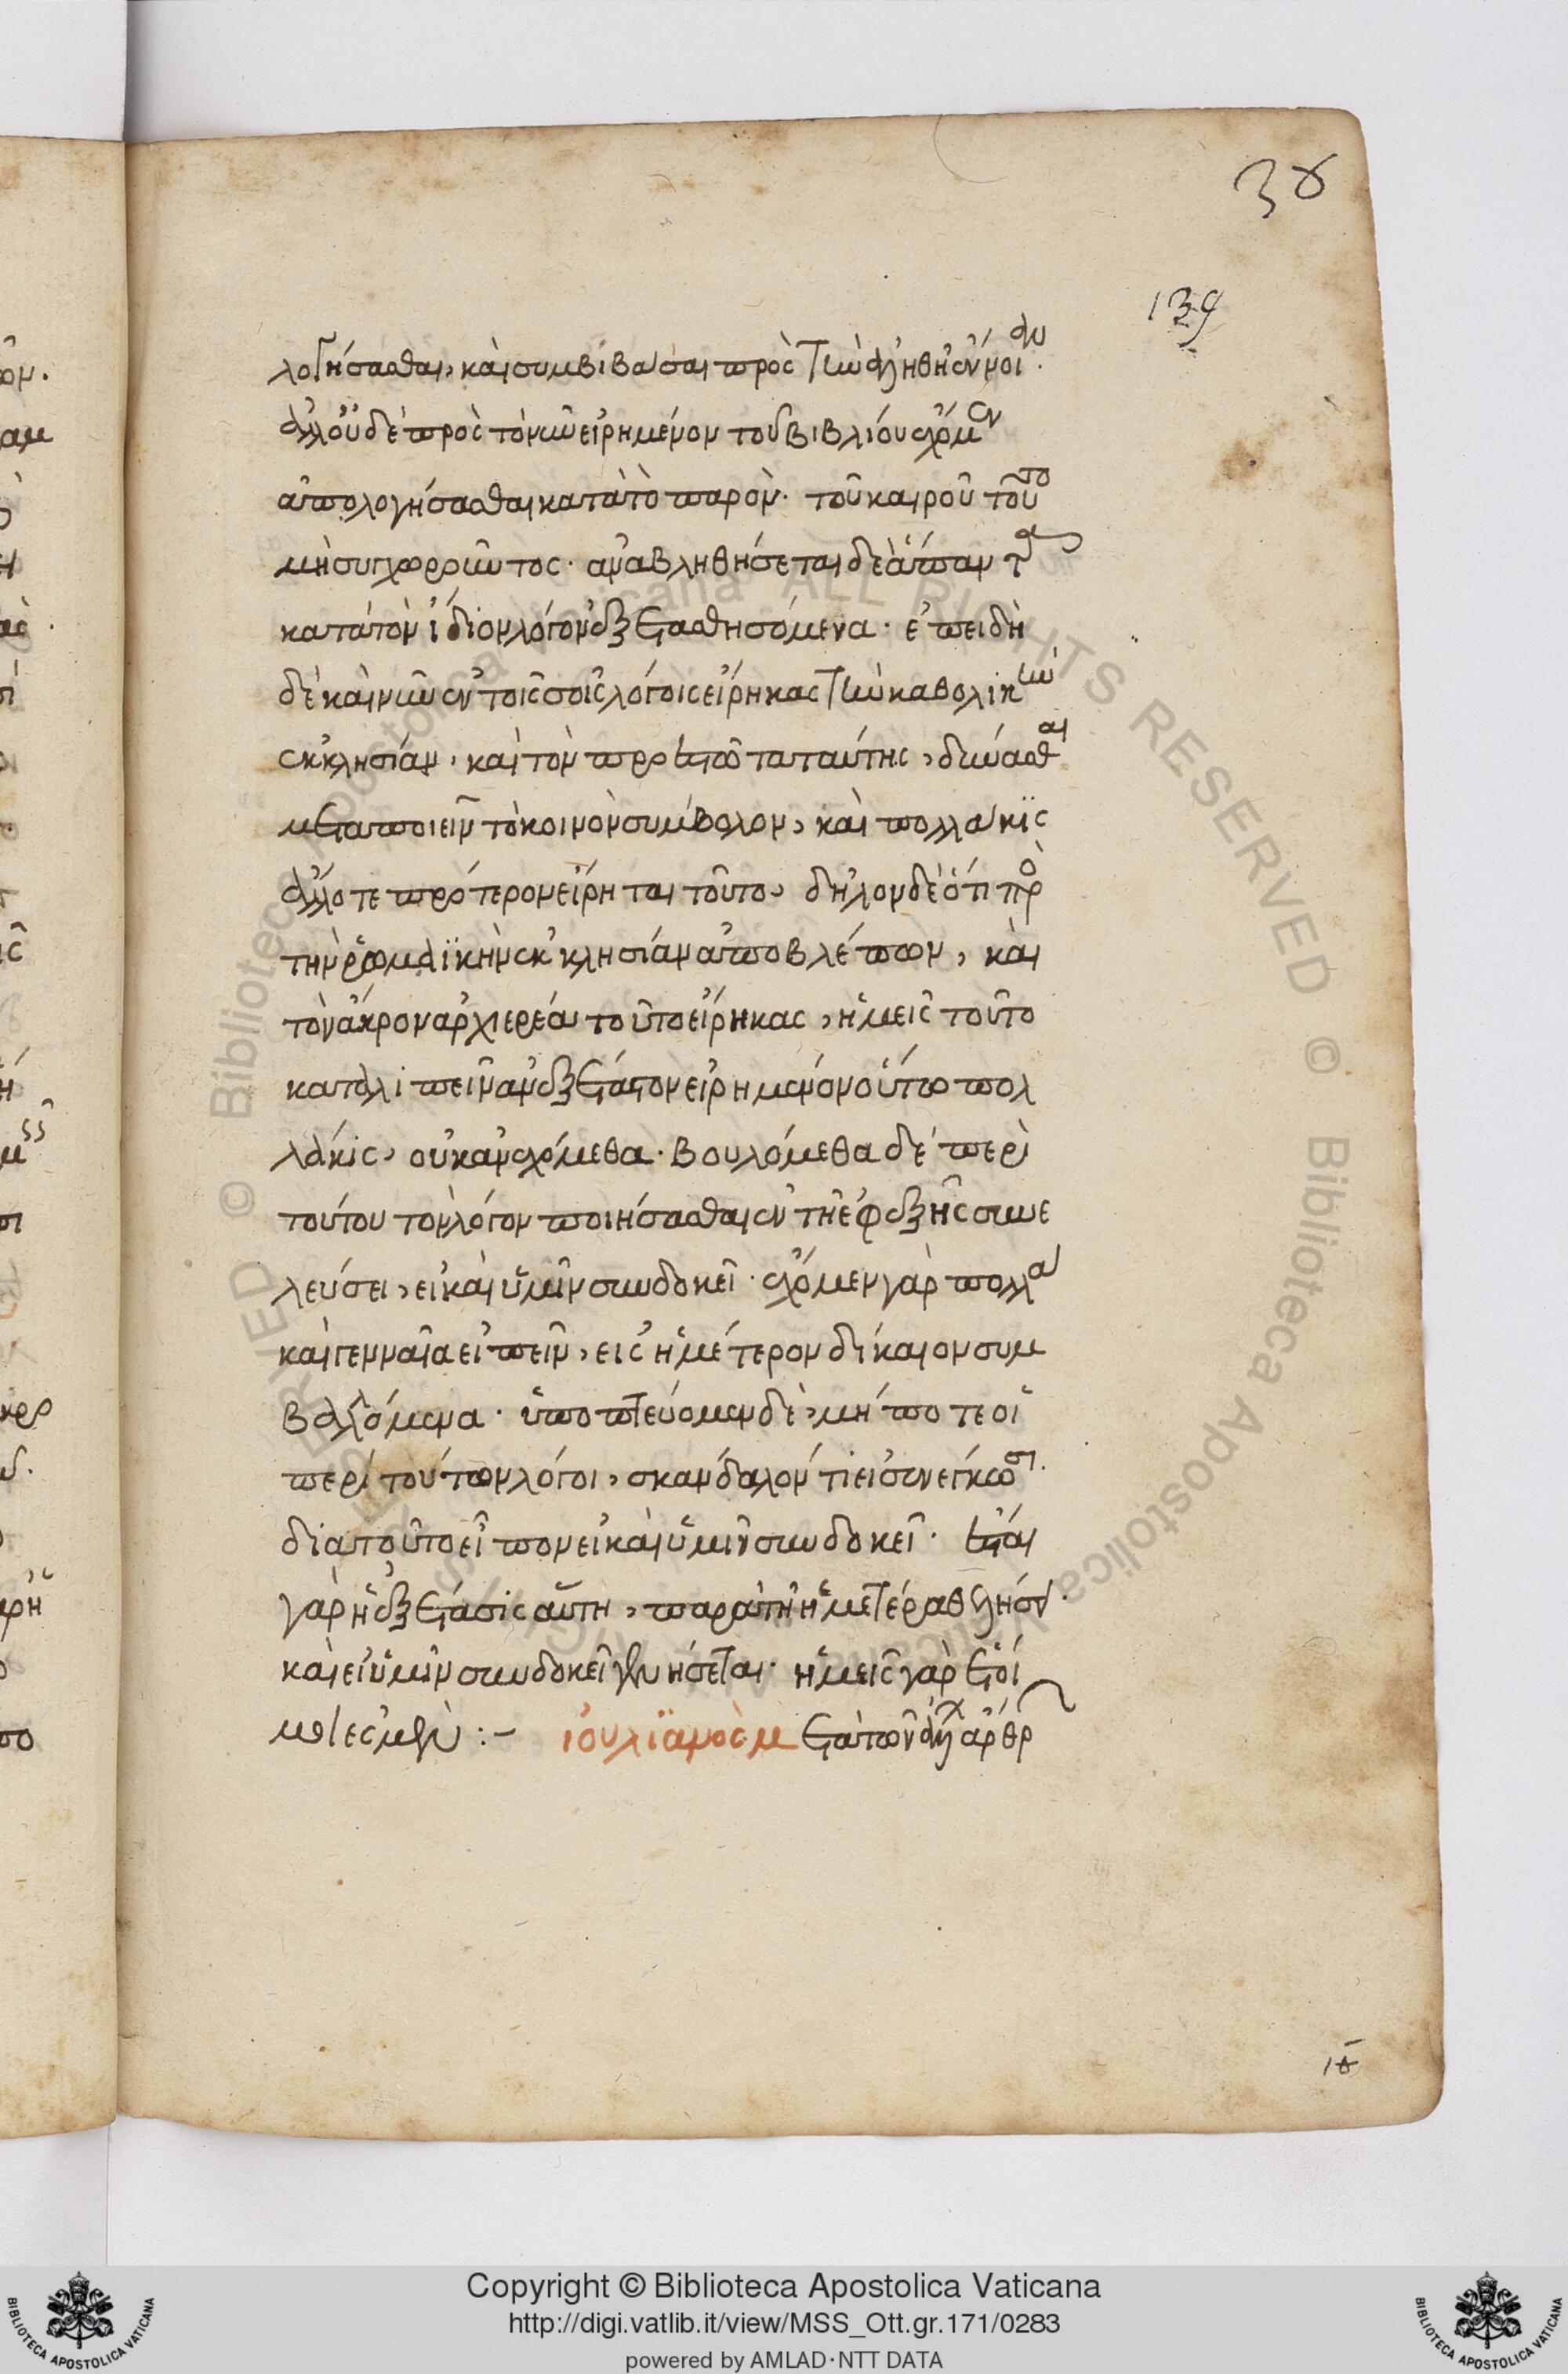 38
139
λογήσασθαι, καὶ συμβιβάσαι πρὸς τὴν ἀληθῆ ἔννοιαν.
ἀλλ' οὐδὲ πρὸς τὸν νῦν εἰρημένον τοῦ βιβλίου ἔχομεν
ἀπολογήσασθαι κατὰ τὸ παρὸν. τοῦ καιροῦ τοῦτο
μὴ συγχωροῦντος. ἀναβληθήσεται δὲ ἅπαντα
κατὰ τὸν ἴδιον λόγον ἐξετασθησόμενα. ἐπειδὴ
δὲ καὶ νῦν ἐν τοῖς σοῖς λόγοις εἴρηκας τὴν καθολικὴν
ἐκκλησίαν, καὶ τὸν προεστῶτα ταύτης, δύνασθαι
μεταποιεῖν τὸ κοινὸν σύμβολον, καὶ πολλάκις
ἄλλοτε πρότερον εἴρηται τοῦτο, δῆλον δὲ ὅτι πρὸς
τὴν ῥωμαϊκὴν ἐκκλησίαν ἀποβλέπων, καὶ
τὸν ἄκρον ἀρχιερέα τοῦτο εἴρηκας, ἡμεῖς τοῦτο
καταλιπεῖν ἀνεξέταστον εἰρημένον οὕτω πολ
λάκις, οὐκ ἀνεχόμεθα. βουλόμεθα δὲ περὶ
τούτου τὸν λόγον ποιήσασθαι ἐν τῇ ἐφεξῆς συνε
λεύσει, εἰ καὶ ὑμῖν συνδοκεῖ. ἔχομεν γὰρ πολλὰ
καὶ γενναῖα εἰπεῖν, εἰς ἡμέτερον δίκαιον συμ
βαλλόμενα. ὑποπτεύομεν δὲ, μή ποτε οἱ
περὶ τούτων λόγοι, σκάνδαλόν τι εἰσενέγκωσι.
διατοῦτο εἴπομεν εἰ καὶ ὑμῖν συνδοκεῖ. ἔσται
γὰρ ἡ ἐξέτασις αὕτη, παρὰ τὴν ἡμετέραν θέλησιν.
καὶ εἰ ὑμῖν συνδοκεῖ γενήσεται. ἡμεῖς γὰρ ἕτοι
μοι ἐσμέν :- ἰουλϊανὸς μετὰ τῶν ἀλλ ἀρθρ
ιδ
Copyright © Biblioteca Apostolica Vaticana
http://digi.vatlib.it/view/MSS_Ott.gr.171/0283
powered by AMLAD·NTT DATA